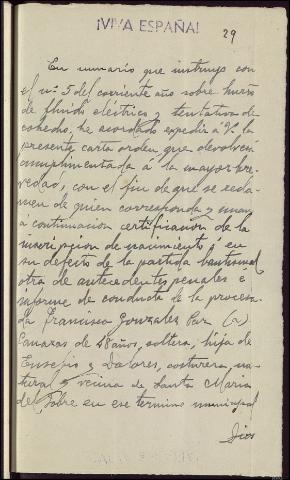 ¡VIVA ESPAÑA!
29
En sumario que instruyo con
el nº 5 del corriente año sobre hurto
de fluido eléctrico y tentativa de
cohecho, he acordado expedir a V. la
presente carta orden que devolverá
cumplimentada á la mayor bre-
vedad, con el fin de que se recla-
men de quien corresponda y unan
á continuacion certificación de la
inscripcion de nacimiento ó en
su defecto de la partida bautismal
otra de antecedentes penales é
informe de conducta de la procesa-
da Francisca Gonzalez Paz (a)
Canaxas de 48 años, soltera, hija de
Eusebio y Dolores, costurera, na-
tural y vecina de Santa Maria
del Jobre en ese termino municipal
Dios